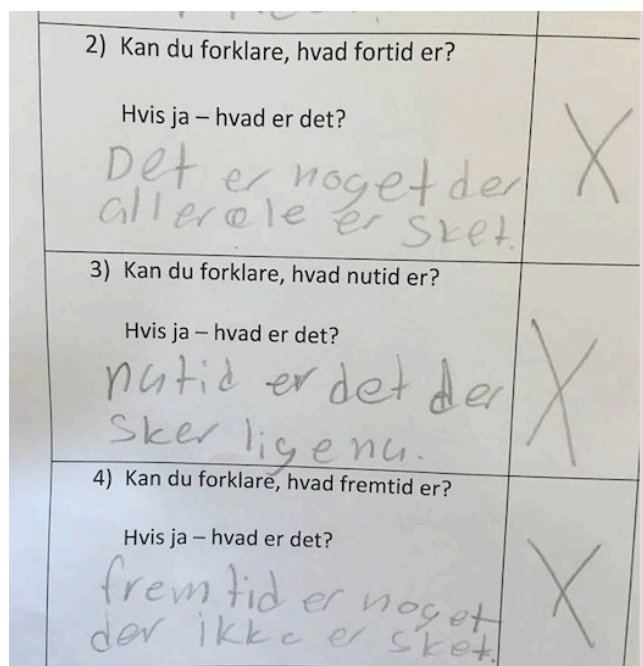 2) Kan du forklare, hvad fortid er?
Hvis ja – hvad er det?
Det er noget der
allerede er sket.
X
3) Kan du forklare, hvad nutid er?
Hvis ja – hvad er det?
nutid er det der
sker lige nu.
X
4) Kan du forklare, hvad fremtid er?
Hvis ja – hvad er det?
fremtid er noget
der ikke er sket.
X